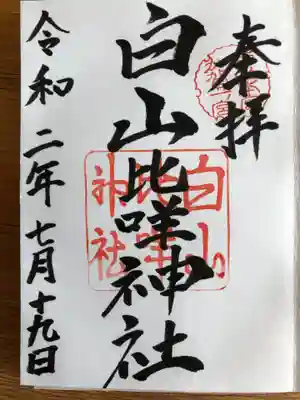 奉拝
白山比咩神社
令和二年七月十九日
白山
比咩
神社